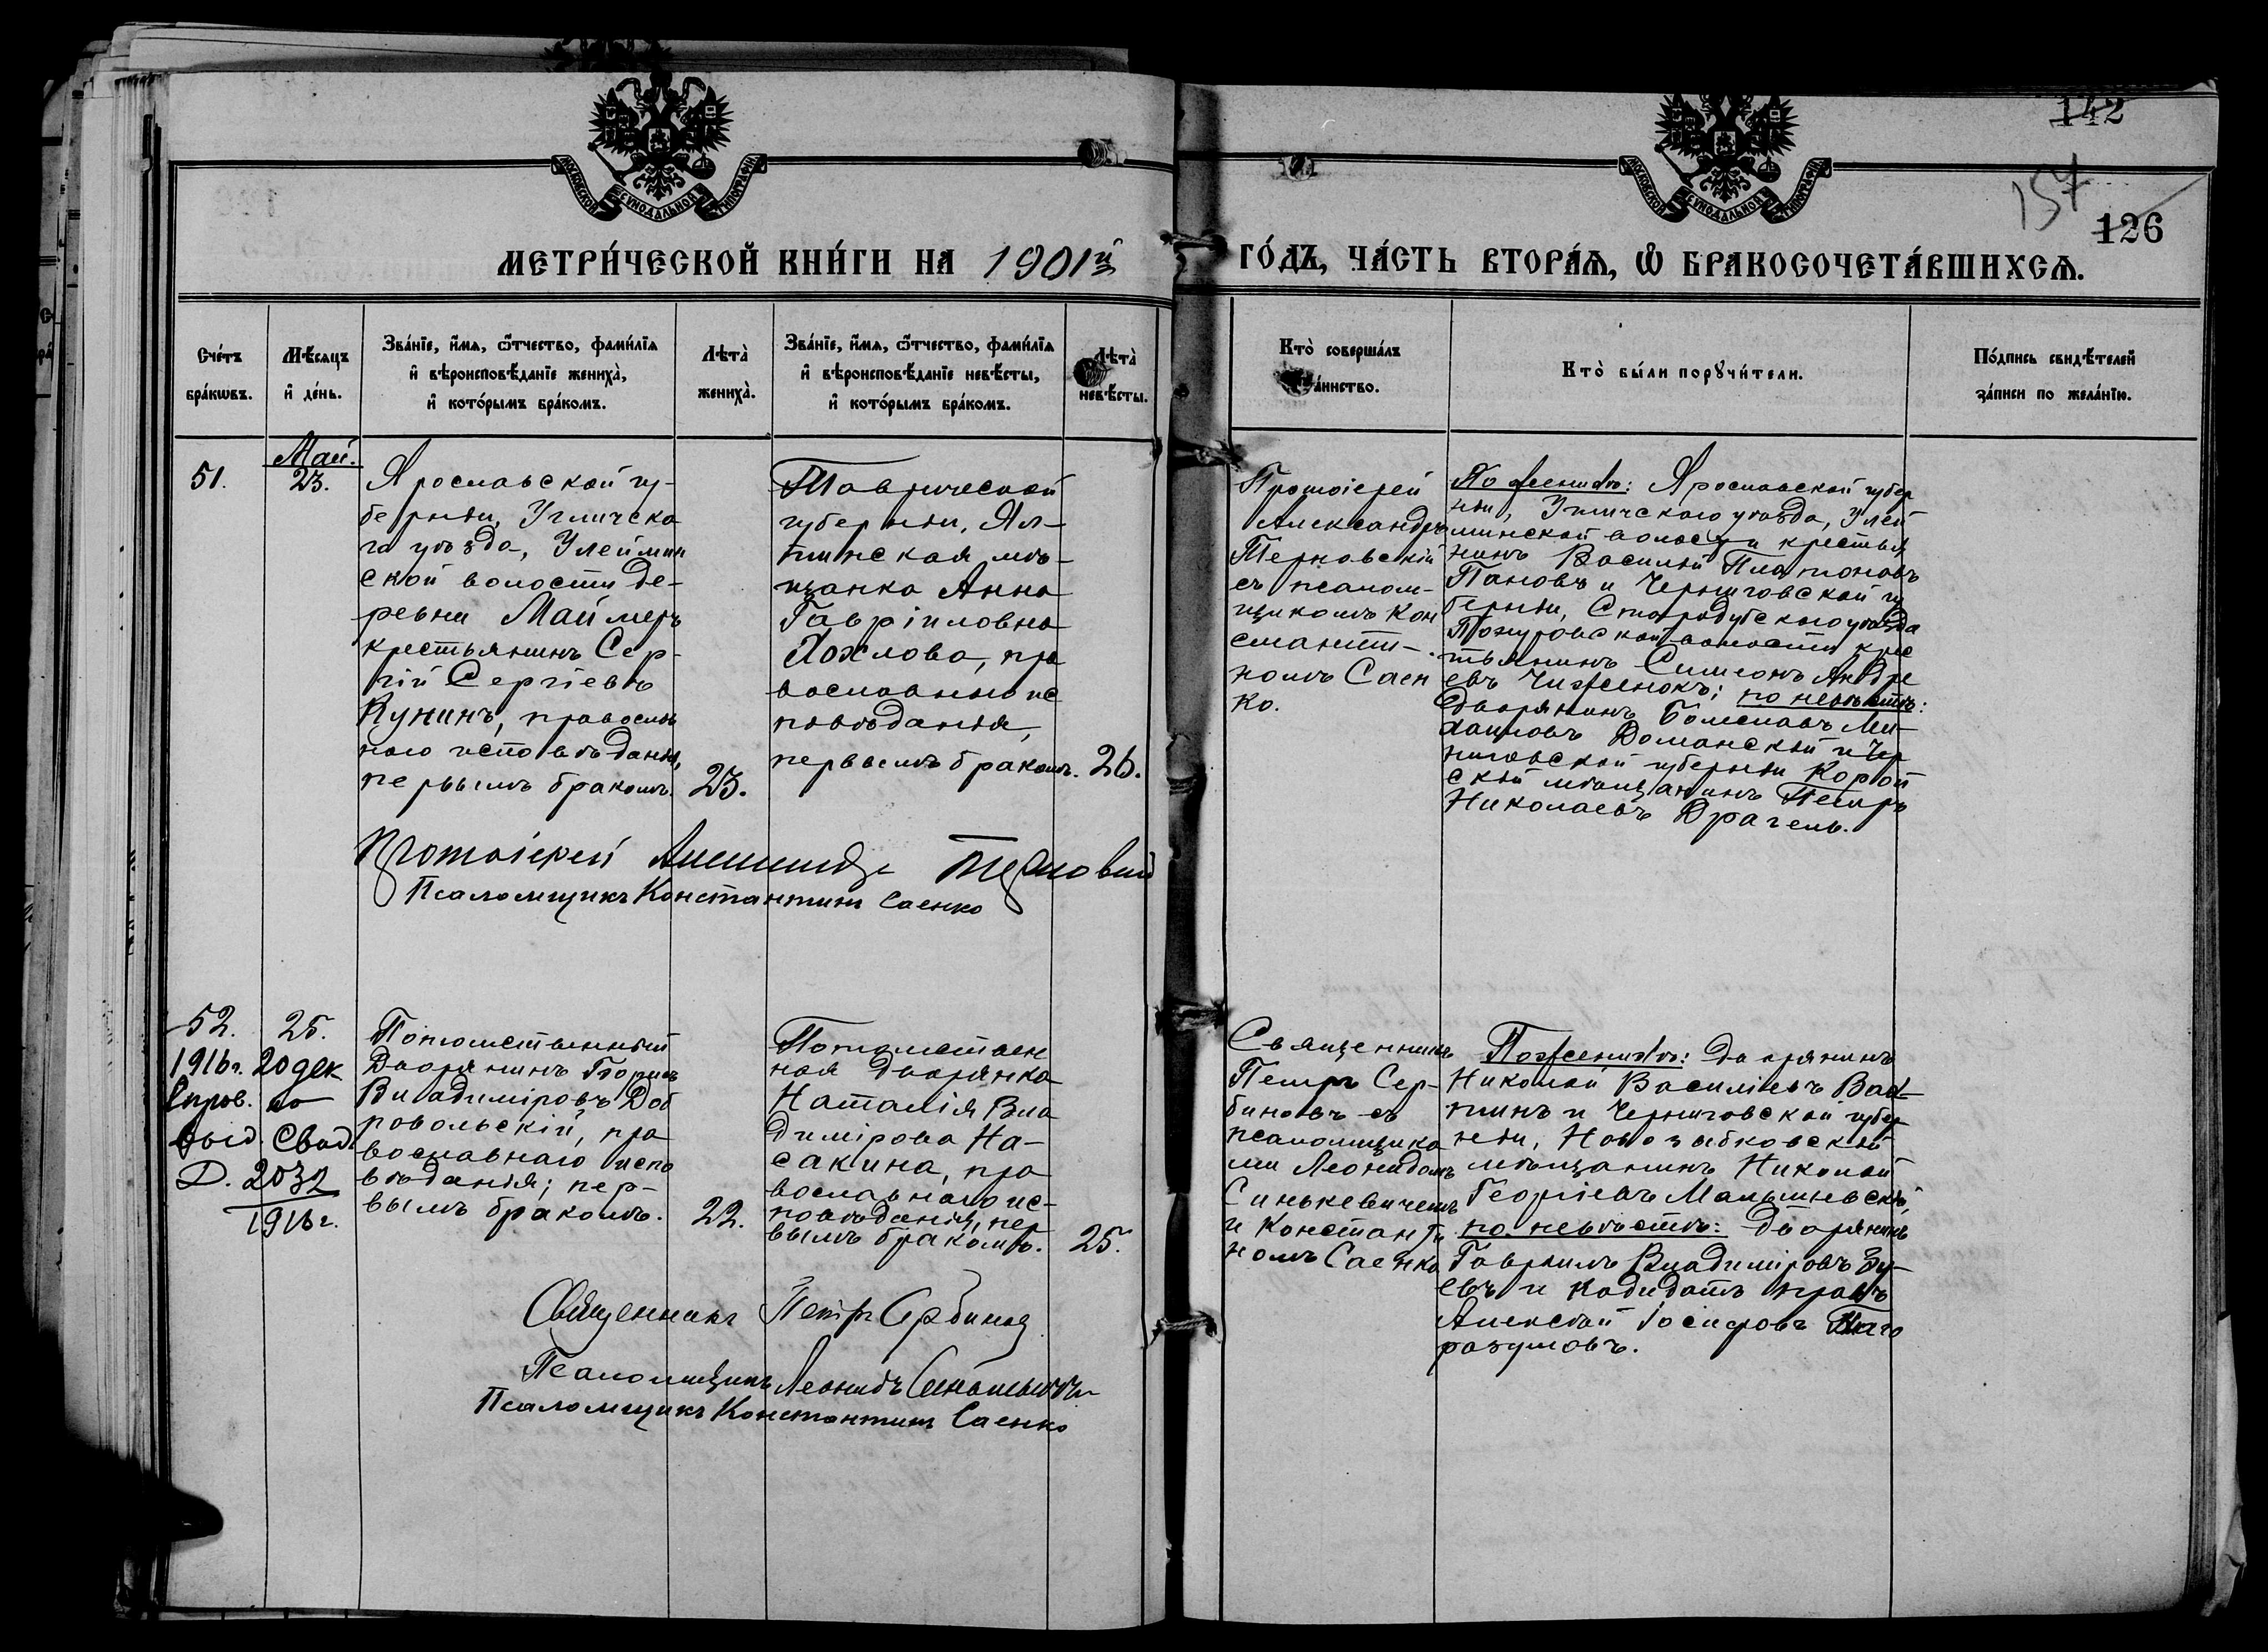 142
157
126
МОСКОВСКОЙ СѴНОДАЛЬНОЙ ТИПОГРАФІИ
МОСКОВСКОЙ СѴНОДАЛЬНОЙ ТИПОГРАФІИ
МЕТРИ́ЧЕСКОЙ КНИ́ГИ НА 1901й
ГО́ДЪ, ЧА́СТЬ ВТОРА́Ѧ, Ѽ БРАКОСОЧЕТА́ВШИХСѦ.
Сче́тъ
бра́кѡвъ.
Мѣ́сѧцъ
и҆ де́нь.
Зва́нїе, и҆́мѧ, ѻ҆́тчество, фами́лїѧ
и҆ вѣроисповѣ́данїе жениха̀,
и҆ кото́рымъ бра́комъ.
Лѣта̀
жениха̀.
Зва́нїе, и҆́мѧ, ѻ҆́тчество, фами́лїѧ
и҆ вѣроисповѣ́данїе невѣ́сты,
и҆ кото́рымъ бра́комъ.
Лѣта̀
невѣ́сты.
Кто̀ соверша́лъ
та́инство.
Кто̀ бы́ли порꙋчи́тели.
По́дпись свидѣ́телей
за́писи по жела́нїю.
51.
Май.
23.
Ярославской гу-
берніи, Угличска
го уѣзда, Улеймин
ской волости де-
ревни Маймеръ
крестьянинъ Сер-
гій Сергіевъ
Кунинъ, православ
наго исповѣданія,
первымъ бракомъ.
23.
Таврической
губерніи, Ял-
тинская мѣ-
щанка Анна
Гавріиловна
Хохлова, пра
вославнаго ис
повѣданія,
первымъ бракомъ.
26.
Протоіерей
Александръ
Терновскій
съ псалом-
щикомъ Кон
станти-
номъ Саен
ко.
По женихѣ: Ярославской губер
ніи, Угличскаго уѣзда, Улей
минской волости крестья
нинъ Василій Платоновъ
Пановъ и Черниговской гу
берніи, Стародубскаго уѣзда
волости крес
тьянинъ Симеонъ Андре
евъ Чиженокъ; по невѣстѣ:
дворянинъ Болеславъ Ми-
хаиловъ Доманскій и Чер
ниговской губерніи Короп
скій мѣщанинъ Петръ
Николаевъ Драгель.
Протоіерей Александръ Терновскій
Псаломщикъ Константинъ Саенко
52.
25.
1916г. 20 дек
Справ. по
выд. Свид.
Д. 2032
1916г.
Потомственный
Дворянинъ Борисъ
Владиміровъ Доб
ровольскій, пра
вославнаго испо
вѣданія; пер-
вымъ бракомъ.
22.
Потомствен
ная дворянка
Наталія Вла
димірова На-
сакина, пра
вославнаго ис-
повѣданія, пер
вымъ бракомъ.
25.
Священникъ
Петръ Сер-
биновъ съ
псаломщика
ми Леонидомъ
Синькевичемъ
и Константи
номъ Саенко
По женихѣ: дворянинъ
Николай Васильевъ Вах-
тинъ и Черниговской губер
ніи, Новозыбковскій
мѣщанинъ Николай
Георгіевъ Малышевскій,
по невѣстѣ: дворянинъ
Гавріилъ Владиміровъ Зу-
евъ и Кадидатъ правъ
Алексѣй Іосифовъ Благо
разумовъ.
Священникъ Петръ Сербиновъ
Псаломщикъ Леонидъ Синькевичъ
Псаломщикъ Константинъ Саенко